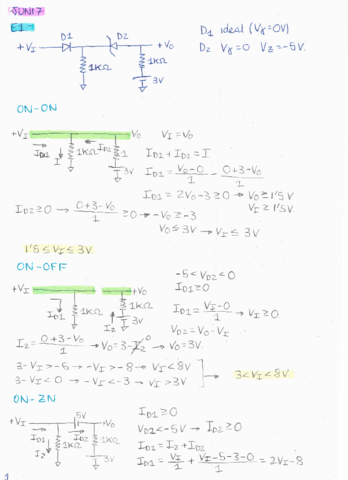 JUNI7
E1
+VI D1 D2 +Vo
1KΩ 1KΩ 3V
D1 ideal (Vγ=0V)
D2 Vγ=0 Vz=-5V.
ON-ON
+VI Vo VI=Vo
ID1 I 1KΩ ID2 1 3V
ID1+ID2=I
ID1=Vo-0/1-0+3-Vo/1
ID1=2Vo-3≥0→Vo≥1'5V
VI≥1'5V.
ID2≥0→0+3-Vo/1≥0→-Vo≥-3
Vo≤3V→VI≤3V
1'5≤VI≤3V.
ON-OFF
-5<VD2<0
+VI +Vo ID1≥0
ID1 1KΩ I2 1KΩ 3V
ID1=VI-0/1→VI≥0
VD2=Vo-VI
I2=0+3-Vo/1→Vo=3-I2 0→Vo=3V.
3-VI>-5→-VI>-8→VI<8V
3-VI<0→-VI<-3→VI>3V
3<VI<8V.
ON-ZN
+VI 5V Vo
ID1 1KΩ ID2 1KΩ 3V
ID1≥0
VD2<-5V→ID2≥0
ID1=I2+ID2
ID1=VI/1+VI-5-3-0/1=2VI-8
1